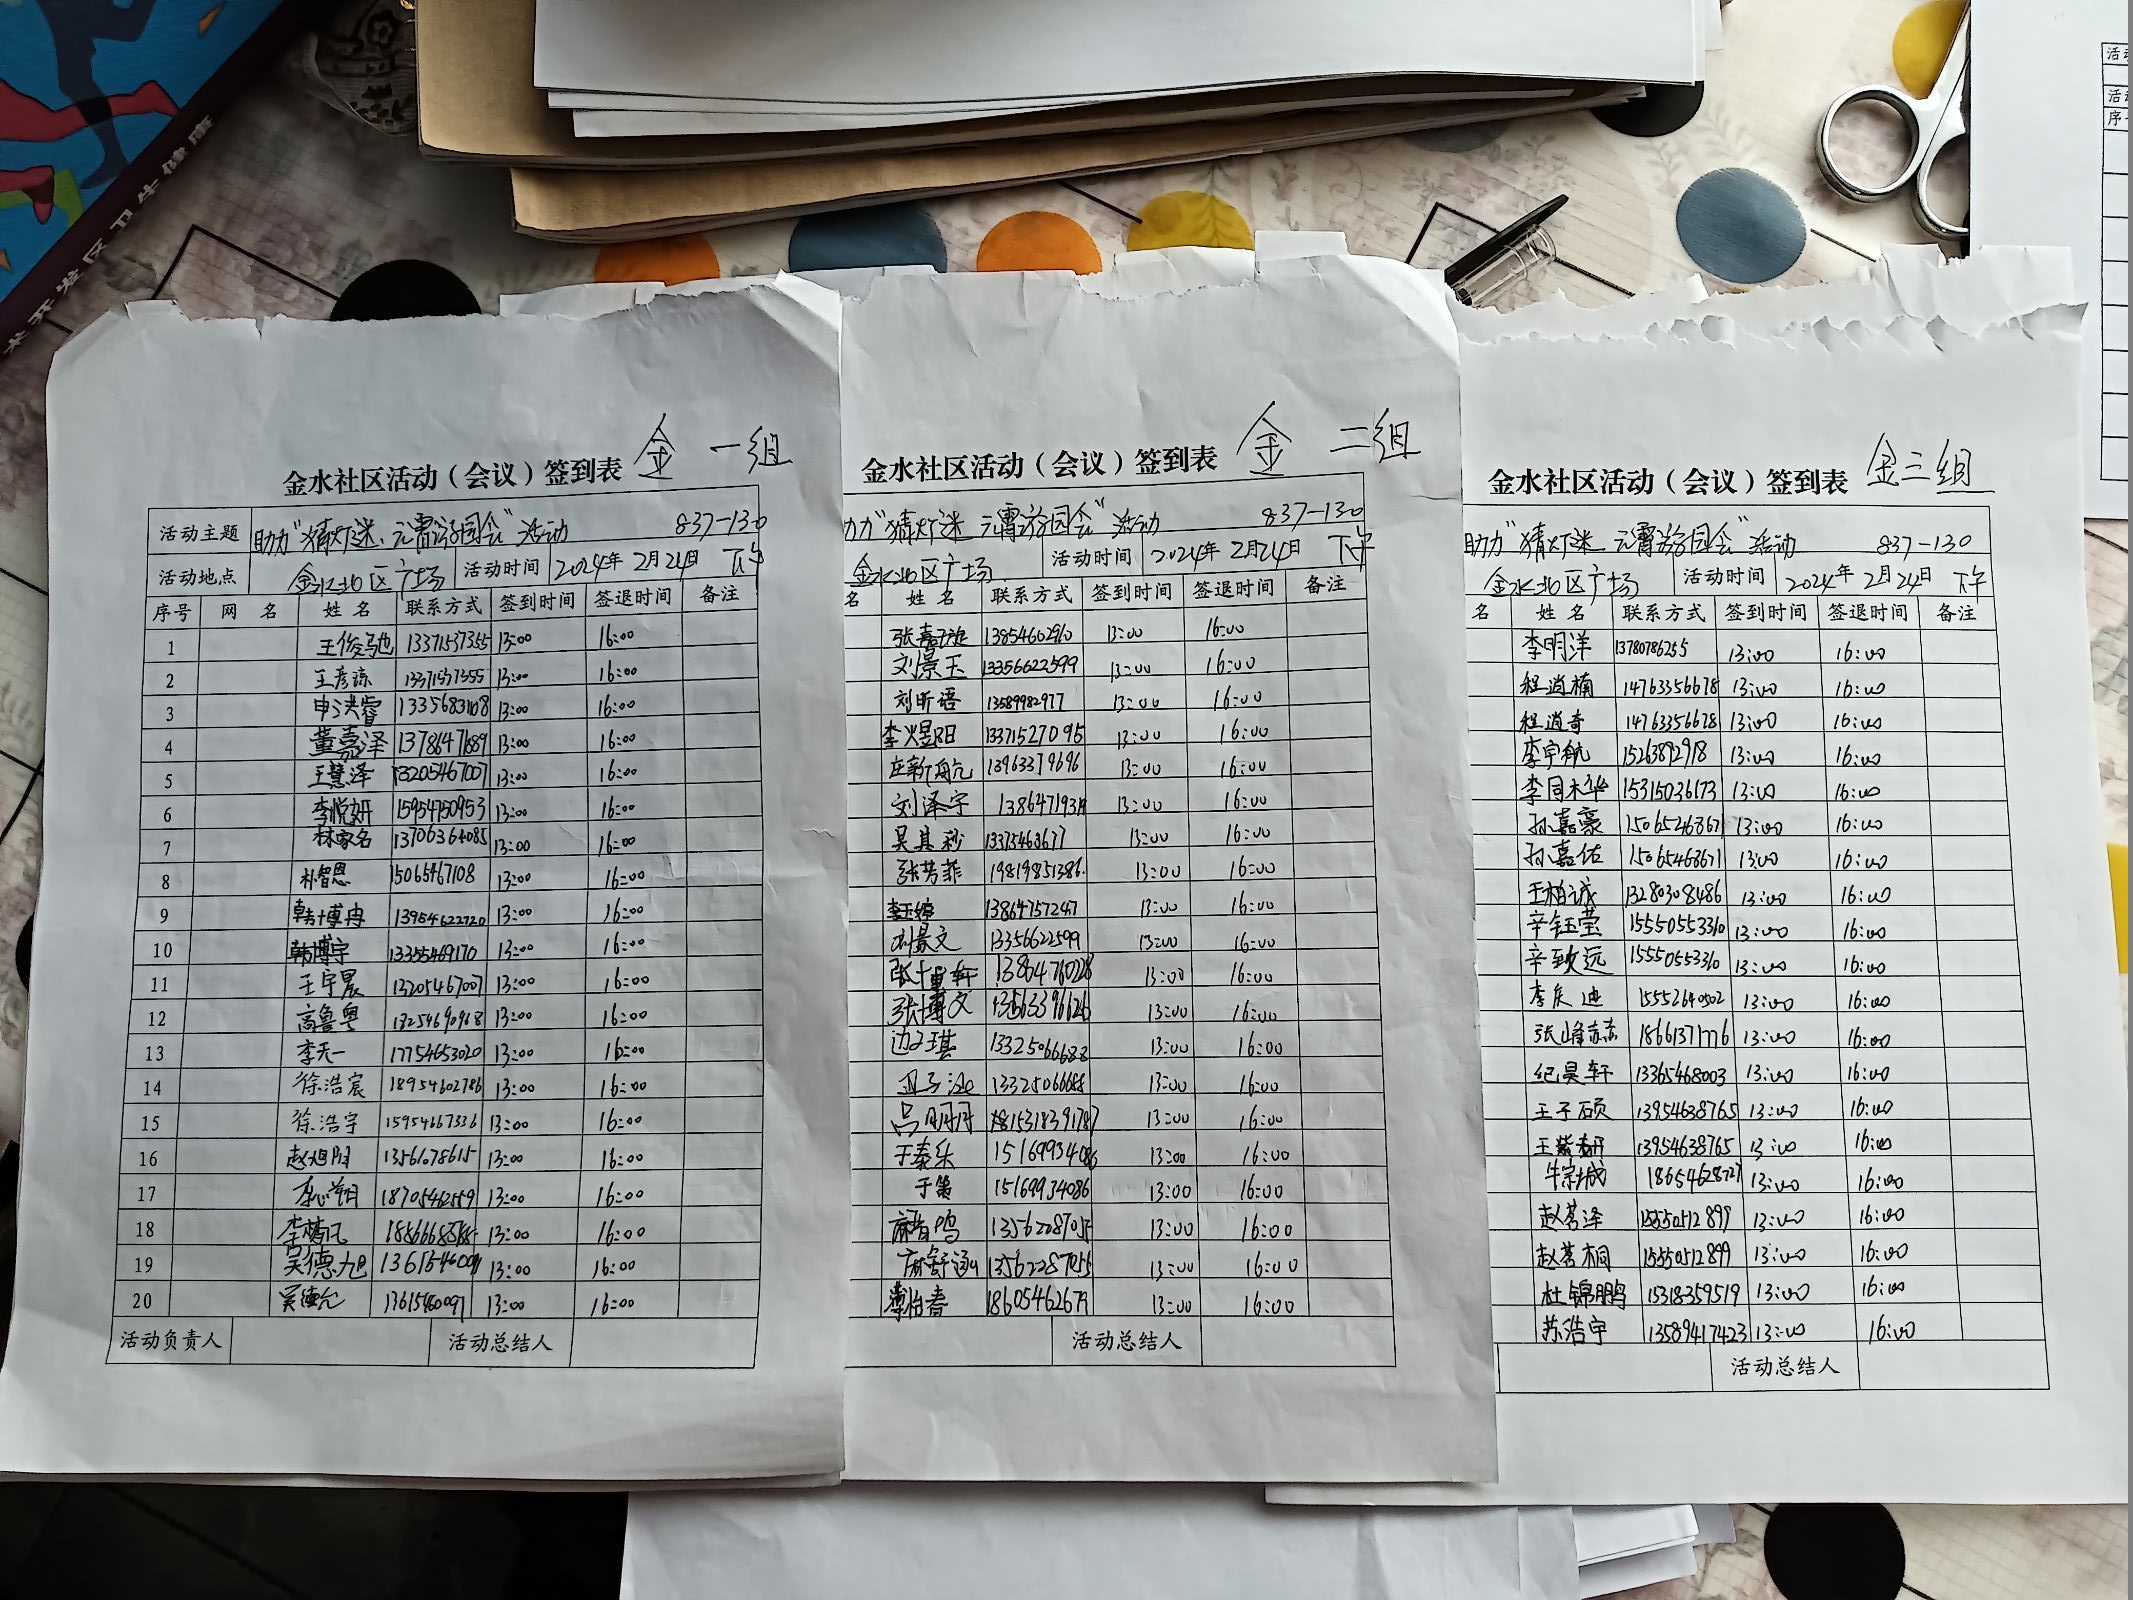 术开发区卫生健康
活
活
序
金水社区活动（会议）签到表 金 一组
活动主题 助力“猜灯迷、元霄游园会”活动 837-130
活动地点 金水北区广场 活动时间 2024年2月24日 下午
序号 网 名 姓 名 联系方式 签到时间 签退时间 备注
1 王俊驰 13371537355 13:00 16:00
2 王彦谅 13371537355 13:00 16:00
3 申洪睿 13356831108 13:00 16:00
4 董嘉泽 13:00 16:00
5 王慧泽 13205467007 13:00 16:00
6 李悦妍 15954750953 13:00 16:00
7 林家名 13706364085 13:00 16:00
8 朴智恩 15065467108 13:00 16:00
9 韩博冉 13954622720 13:00 16:00
10 韩博宇 13355469170 13:00 16:00
11 王宇晨 13205467007 13:00 16:00
12 高鲁粤 18254690968 13:00 16:00
13 李天一 17754653020 13:00 16:00
14 徐浩宸 18954602786 13:00 16:00
15 徐浩宇 15954667336 13:00 16:00
16 赵旭阳 13561078615 13:00 16:00
17 18705462559 13:00 16:00
18 13:00 16:00
19 吴德旭 13615460091 13:00 16:00
20 吴德允 13615460091 13:00 16:00
活动负责人 活动总结人
金水社区活动（会议）签到表 金 二组
助力“猜灯迷 元霄游园会”活动 837-130
金水北区广场 活动时间 2024年2月24日 下午
名 姓 名 联系方式 签到时间 签退时间 备注
张嘉旋 13854602960 13:00 16:00
刘景玉 13356622599 13:00 16:00
刘昕语 13589982977 13:00 16:00
李煜阳 13371527095 13:00 16:00
庄新航 13963379696 13:00 16:00
刘泽宇 13:00 16:00
吴其秒 13375463677 13:00 16:00
张芳菲 19819851386 13:00 16:00
李玉婷 13864757247 13:00 16:00
刘景文 13356622599 13:00 16:00
13864760228 13:00 16:00
张博文 13563396626 13:00 16:00
边子琪 13325066688 13:00 16:00
13325066688 13:00 16:00
吕明月 13:00 16:00
于泰乐 15169934086 13:00 16:00
于策 15169934086 13:00 16:00
麻智鸣 13:00 16:00
麻舒涵 13562287055 13:00 16:00
薄怡春 18605462679 13:00 16:00
活动总结人
金水社区活动（会议）签到表 金三组
助力“猜灯迷 元霄游园会”活动 837-130
金水北区广场 活动时间 2024年2月24日 下午
名 姓 名 联系方式 签到时间 签退时间 备注
李明洋 13780786255 13:00 16:00
程逍楠 14763356678 13:00 16:00
程逍奇 14763356678 13:00 16:00
李宇航 15263892918 13:00 16:00
李同华 15315036173 13:00 16:00
孙嘉豪 15065468671 13:00 16:00
孙嘉佑 15065468671 13:00 16:00
王柏诚 13280308486 13:00 16:00
辛钰莹 15550553310 13:00 16:00
辛致远 15550553310 13:00 16:00
李庆迪 15552640502 13:00 16:00
张峰赫 18661371776 13:00 16:00
纪昊轩 13365468003 13:00 16:00
王子硕 13954638765 13:00 16:00
王紫妍 13954638765 13:00 16:00
牛宗城 18654628727 13:00 16:00
赵茗泽 15550512899 13:00 16:00
赵茗桐 15550512899 13:00 16:00
杜锦鹏 15318359519 13:00 16:00
苏浩宇 13589417423 13:00 16:00
活动总结人